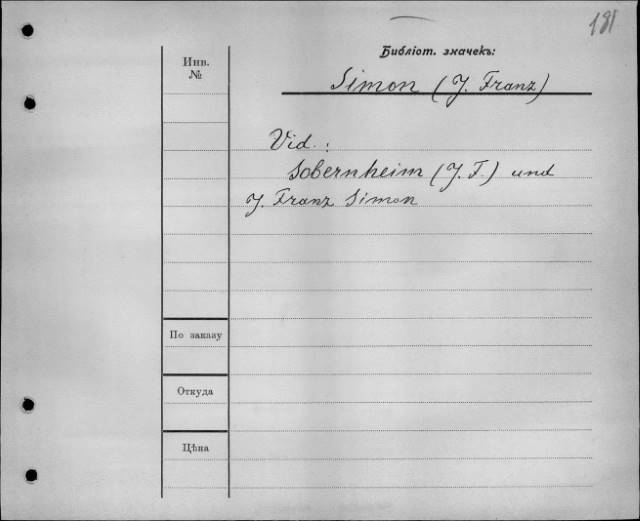 181
Библіот. значекъ:
Инв.
№
Simon (J. Franz)
Vid.:
Sobernheim (J. F.) und
J. Franz Simon
По заказу
Откуда
Цѣна